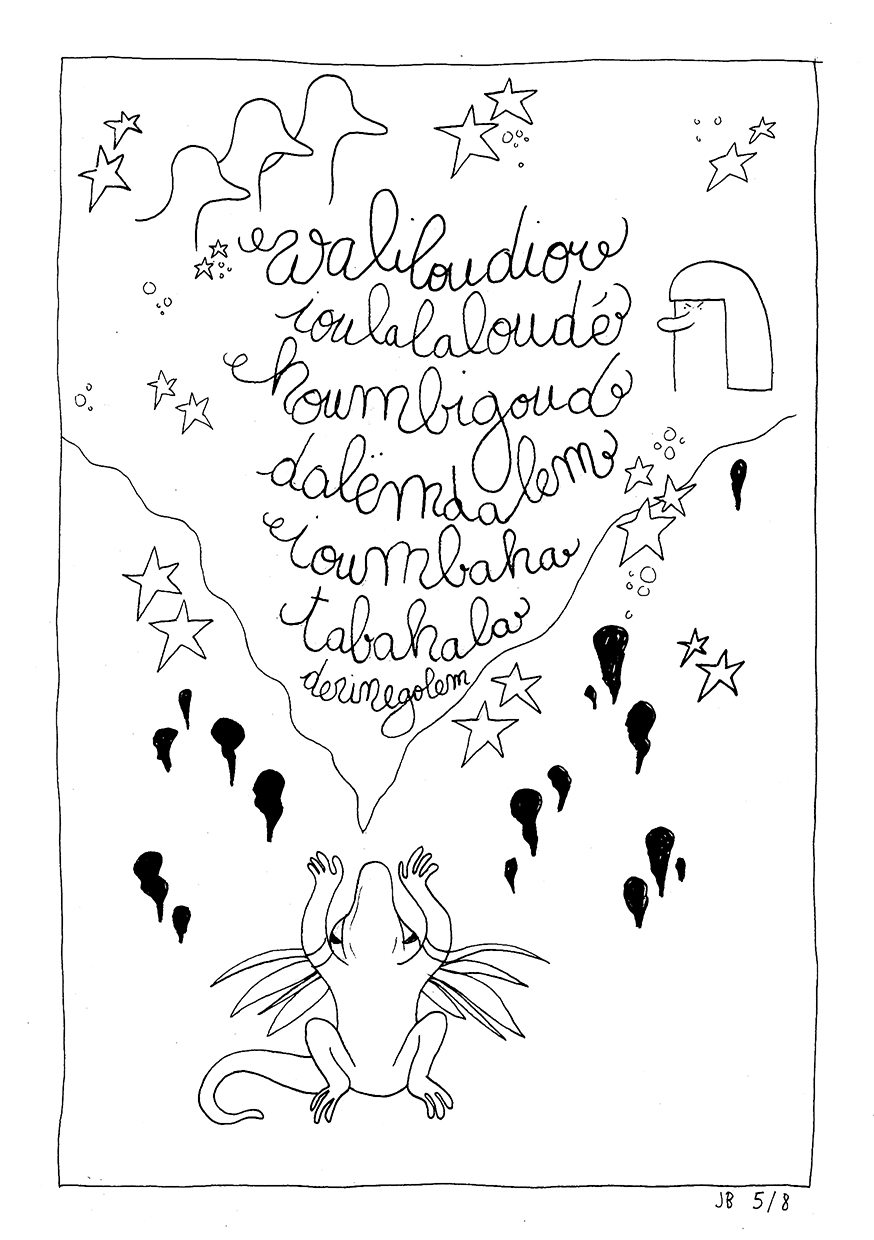 waliloudiou
ioulalaloudé
houmbigoud
dalëmdalem
ioumbaha
tabahala
derinegolem
JB 5/8